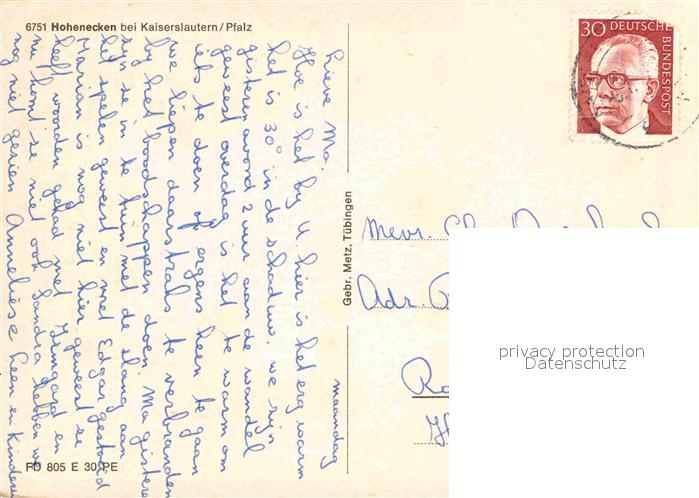 6751 Hohenecken bei Kaiserslautern/Pfalz
30 DEUTSCHE BUNDESPOST
maandag
Lieve Ma.
Hoe is het by U. hier is het erg warm
het is 30° in de schaduw. we zijn
gisteren avond 2 uur aan de wandel
geweest overdag is het te warm om
iets te doen of ergens heen te gaan
we liepen daarstraks te verbranden
by het boodschappen doen. Ma gisteren
zijn se in te tuin met de slang aan
het spelen geweest en met Edgar gestoeid
Marian is nog niet hier geweest se
heeft woorden gehad met Irmgard en
nu komt se niet ook Sandra hebben we
nog niet gezien Anneliese Leen en kinderen
Gebr. Metz, Tübingen
Mevr.
Adr.
privacy protection
Datenschutz
FD 805 E 30 PE